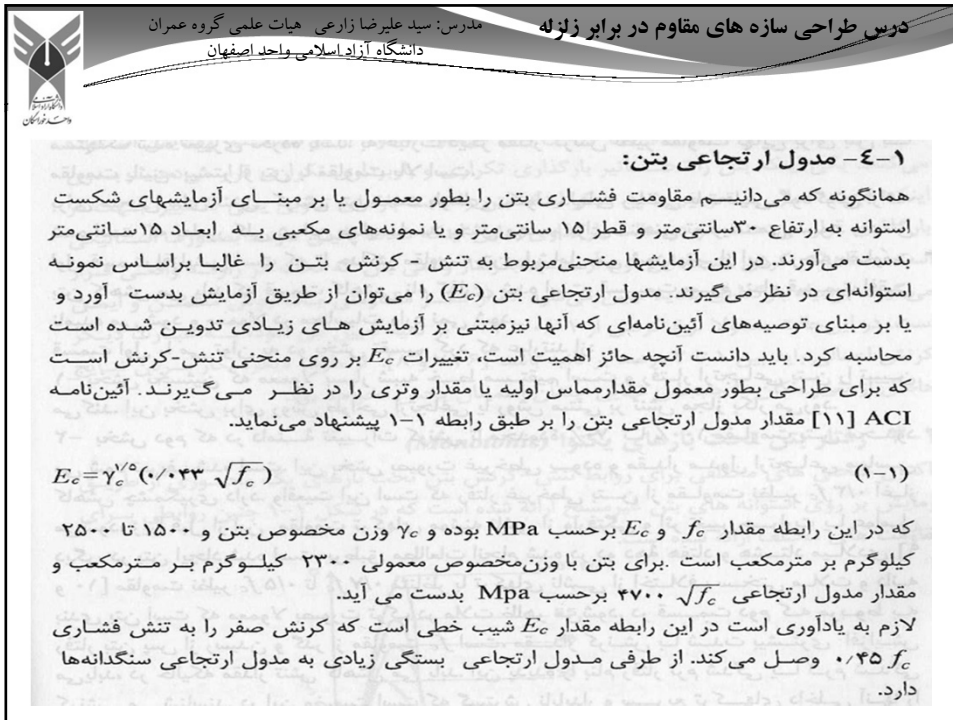 درس طراحی سازه های مقاوم در برابر زلزله
مدرس: سید علیرضا زارعی هیات علمی گروه عمران
دانشگاه آزاد اسلامی واحد اصفهان
۱-٤- مدول ارتجاعی بتن:
همانگونه که می‌دانیم مقاومت فشاری بتن را بطور معمول یا بر مبنای آزمایشهای شکست
استوانه به ارتفاع ۳۰سانتی‌متر و قطر ۱۵ سانتی‌متر و یا نمونه‌های مکعبی به ابعاد ۱۵سانتی‌متر
بدست می‌آورند. در این آزمایشها منحنی‌مربوط به تنش - کرنش بتن را غالبا براساس نمونه
استوانه‌ای در نظر می‌گیرند. مدول ارتجاعی بتن (Ec) را می‌توان از طریق آزمایش بدست آورد و
یا بر مبنای توصیه‌های آئین‌نامه‌ای که آنها نیزمبتنی بر آزمایش های زیادی تدوین شده است
محاسبه کرد. باید دانست آنچه حائز اهمیت است، تغییرات Ec بر روی منحنی تنش-کرنش است
که برای طراحی بطور معمول مقدارمماس اولیه یا مقدار وتری را در نظر می‌گیرند. آئین‌نامه
ACI [۱۱] مقدار مدول ارتجاعی بتن را بر طبق رابطه ۱-۱ پیشنهاد می‌نماید.
Ec=γc^۱/۵(۰/۰۴۳ √f′c) (۱-۱)
که در این رابطه مقدار f′c و Ec برحسب MPa بوده و γc وزن مخصوص بتن و ۱۵۰۰ تا ۲۵۰۰
کیلوگرم بر مترمکعب است .برای بتن با وزن‌مخصوص معمولی ۲۳۰۰ کیلوگرم بر مترمکعب و
مقدار مدول ارتجاعی ۴۷۰۰ √f′c برحسب Mpa بدست می آید.
لازم به یادآوری است در این رابطه مقدار Ec شیب خطی است که کرنش صفر را به تنش فشاری
۰/۴۵ f′c وصل می‌کند. از طرفی مدول ارتجاعی بستگی زیادی به مدول ارتجاعی سنگدانه‌ها
دارد.